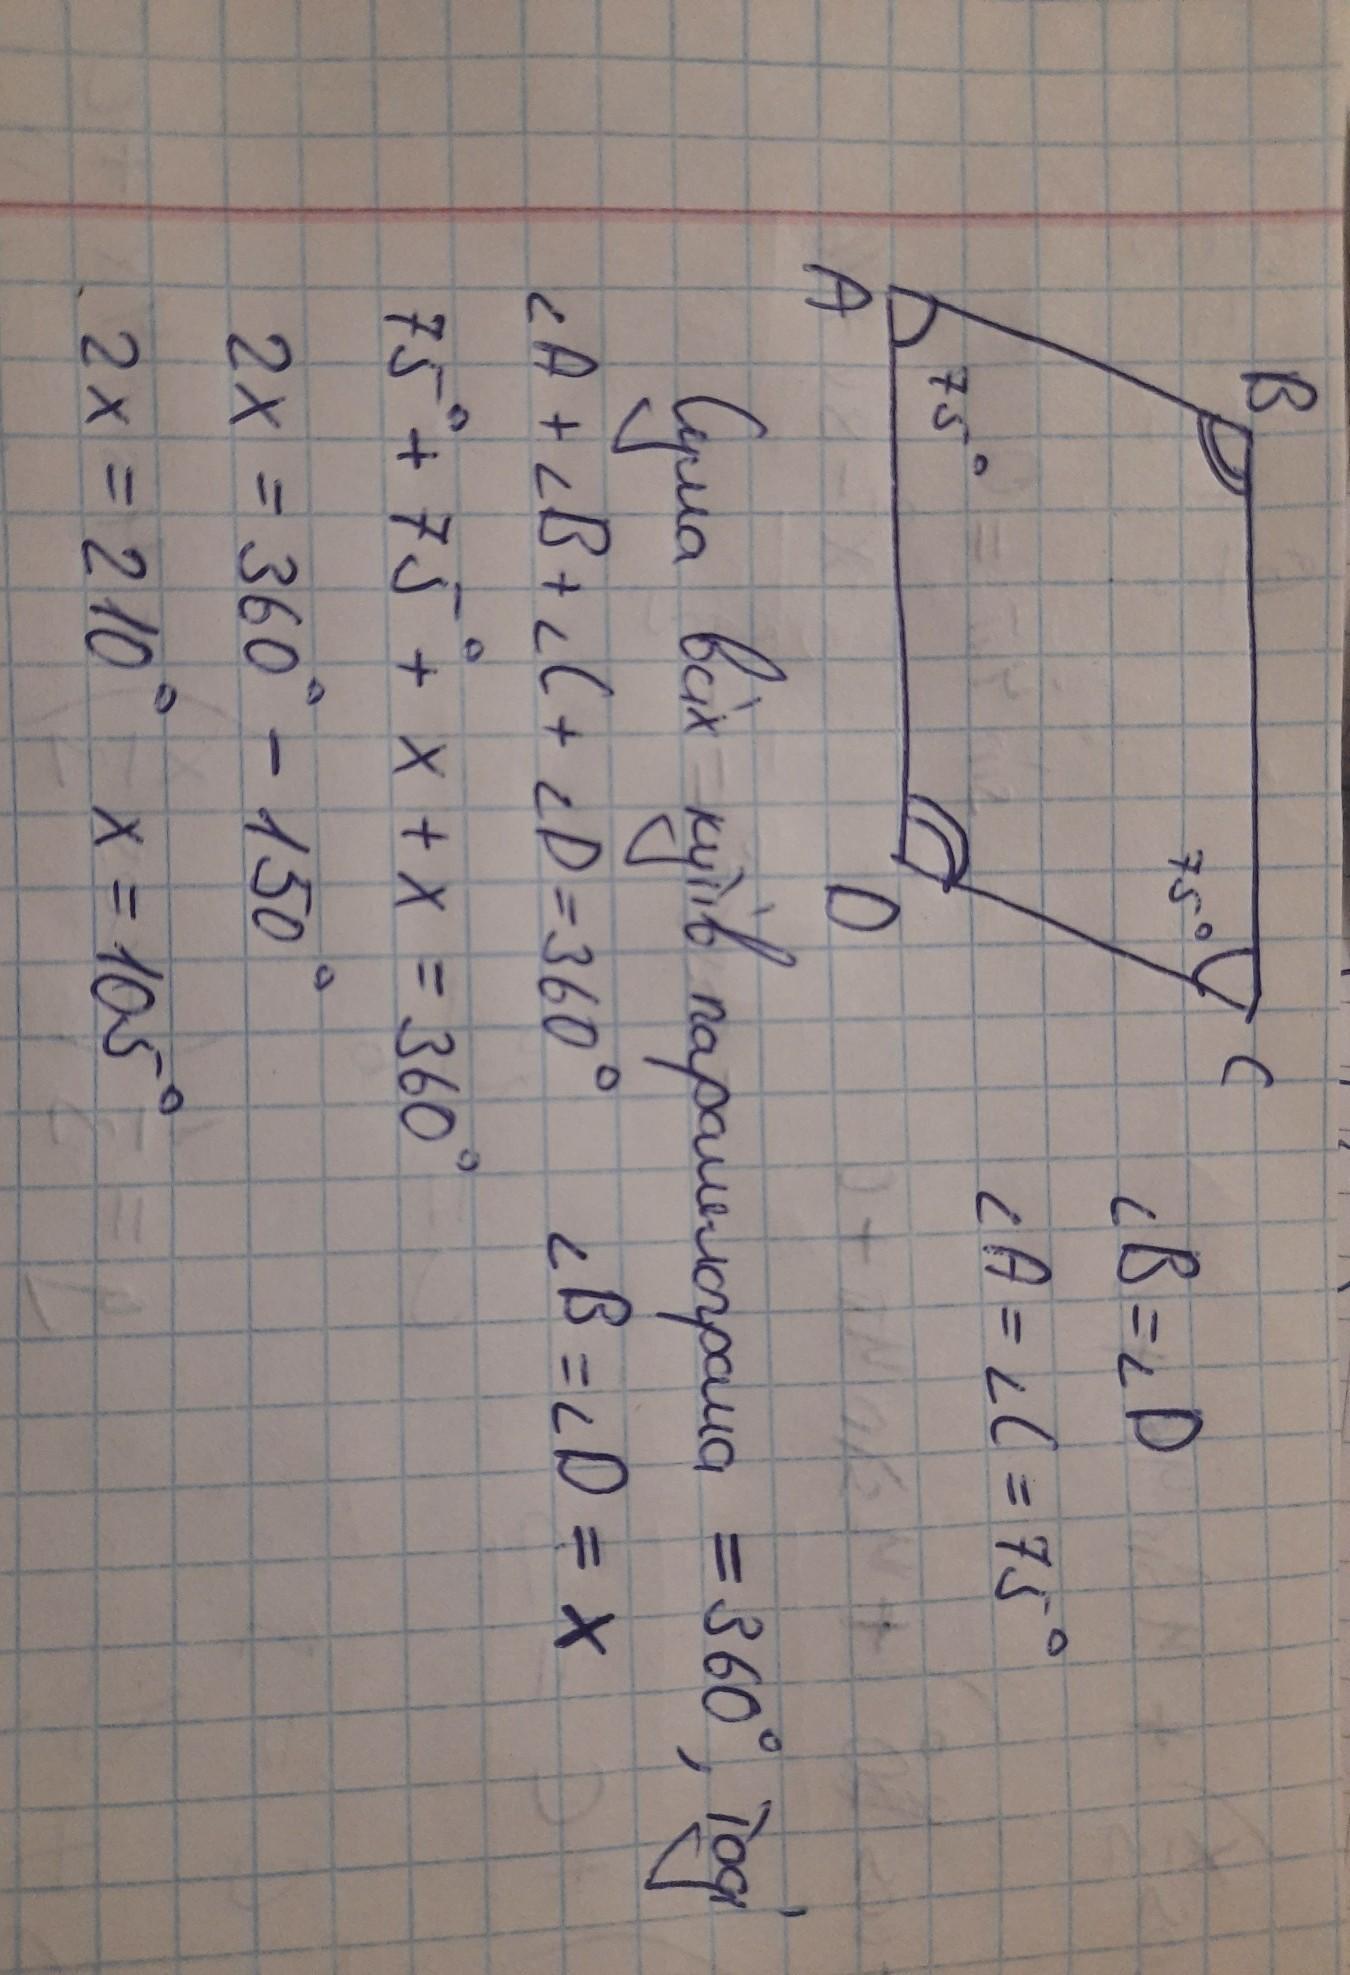 B
C
∠B=∠D
75°
75°
∠A=∠C=75°
A
D
Сума всіх кутів паралелограма =360°, тоді
∠A+∠B+∠C+∠D=360° ∠B=∠D=x
75°+75°+x+x=360°
2x=360°-150°
2x=210° x=105°